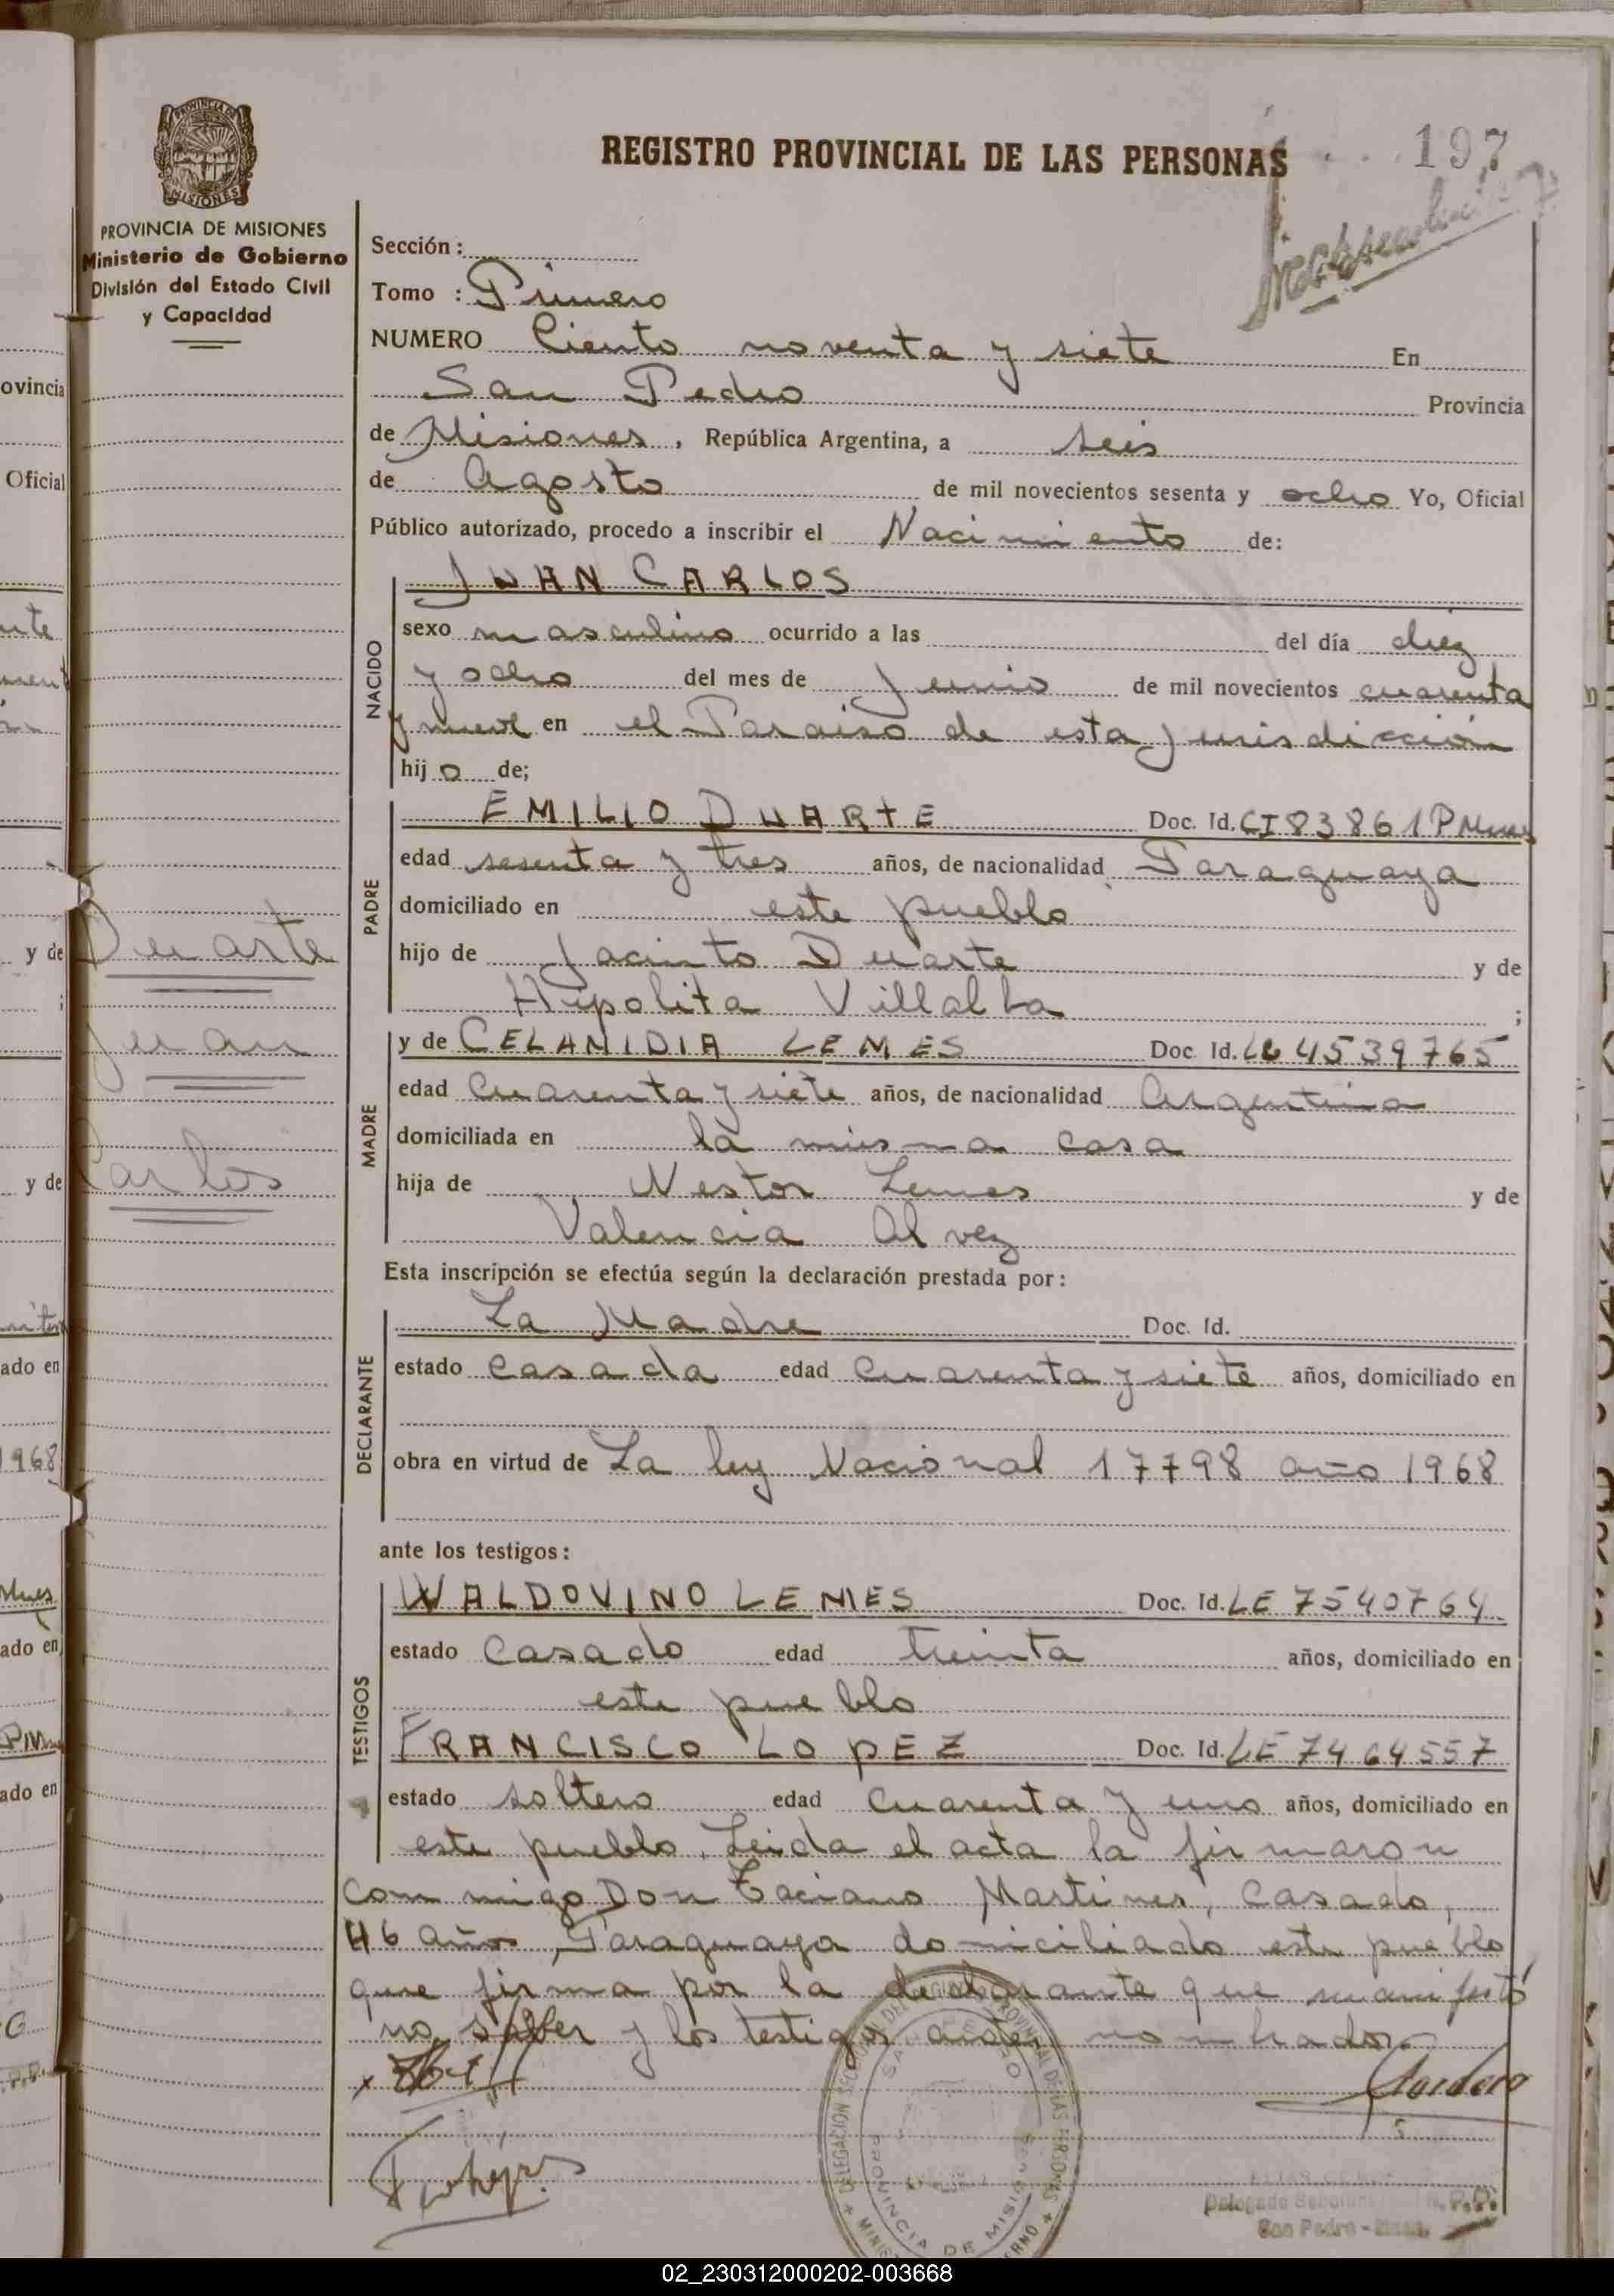 REGISTRO PROVINCIAL DE LAS PERSONAS
197
PROVINCIA DE MISIONES
Ministerio de Gobierno
División del Estado Civil
y Capacidad
Sección :
Tomo : Primero
NUMERO Ciento noventa y siete En
San Pedro Provincia
de Misiones, República Argentina, a seis
de Agosto de mil novecientos sesenta y ocho Yo, Oficial
Público autorizado, procedo a inscribir el Nacimiento de:
NACIDO
JUAN CARLOS
sexo masculino ocurrido a las del día diez
y ocho del mes de Junio de mil novecientos cuarenta
y nueve en el Paraiso de esta jurisdicción
hijo de;
PADRE
EMILIO DUARTE Doc. Id. CI 83861 P Mnes
edad sesenta y tres años, de nacionalidad Paraguaya
domiciliado en este pueblo
hijo de Jacinto Duarte y de
Hipolita Villalba ;
Duarte
Juan
Carlos
MADRE
y de CELANIDIA LEMES Doc. Id. LC 4539765
edad Cuarenta y siete años, de nacionalidad Argentina
domiciliada en la misma casa
hija de Nestor Lemes y de
Valencia Alvez
Esta inscripción se efectúa según la declaración prestada por:
DECLARANTE
La Madre Doc. Id.
estado Casada edad Cuarenta y siete años, domiciliado en
obra en virtud de La ley Nacional 17798 año 1968
ante los testigos:
TESTIGOS
WALDOVINO LEMES Doc. Id. LE 7540764
estado Casado edad treinta años, domiciliado en
este pueblo
FRANCISCO LOPEZ Doc. Id. LE 7464557
estado soltero edad Cuarenta y uno años, domiciliado en
este pueblo. Leida el acta la firmaron
conmigo Don Taciano Martines, Casado,
46 años, Paraguaya domiciliado este pueblo
que firma por la declarante que manifestó
no saber y los testigos antes nombrados
DELEGACION SECCIONAL DEL REGISTRO PROVINCIAL DE LAS PERSONAS
SAN PEDRO
PROVINCIA DE MISIONES
San Pedro - Mnes.
ovincia
Oficial
y de
y de
ado en
1968
ado en
ado en
02_230312000202-003668